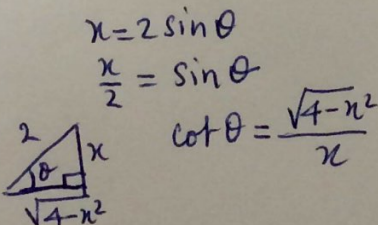 x = 2 sin θ
x/2 = sin θ
cot θ = √(4-x²)/x
2
x
θ
√(4-x²)